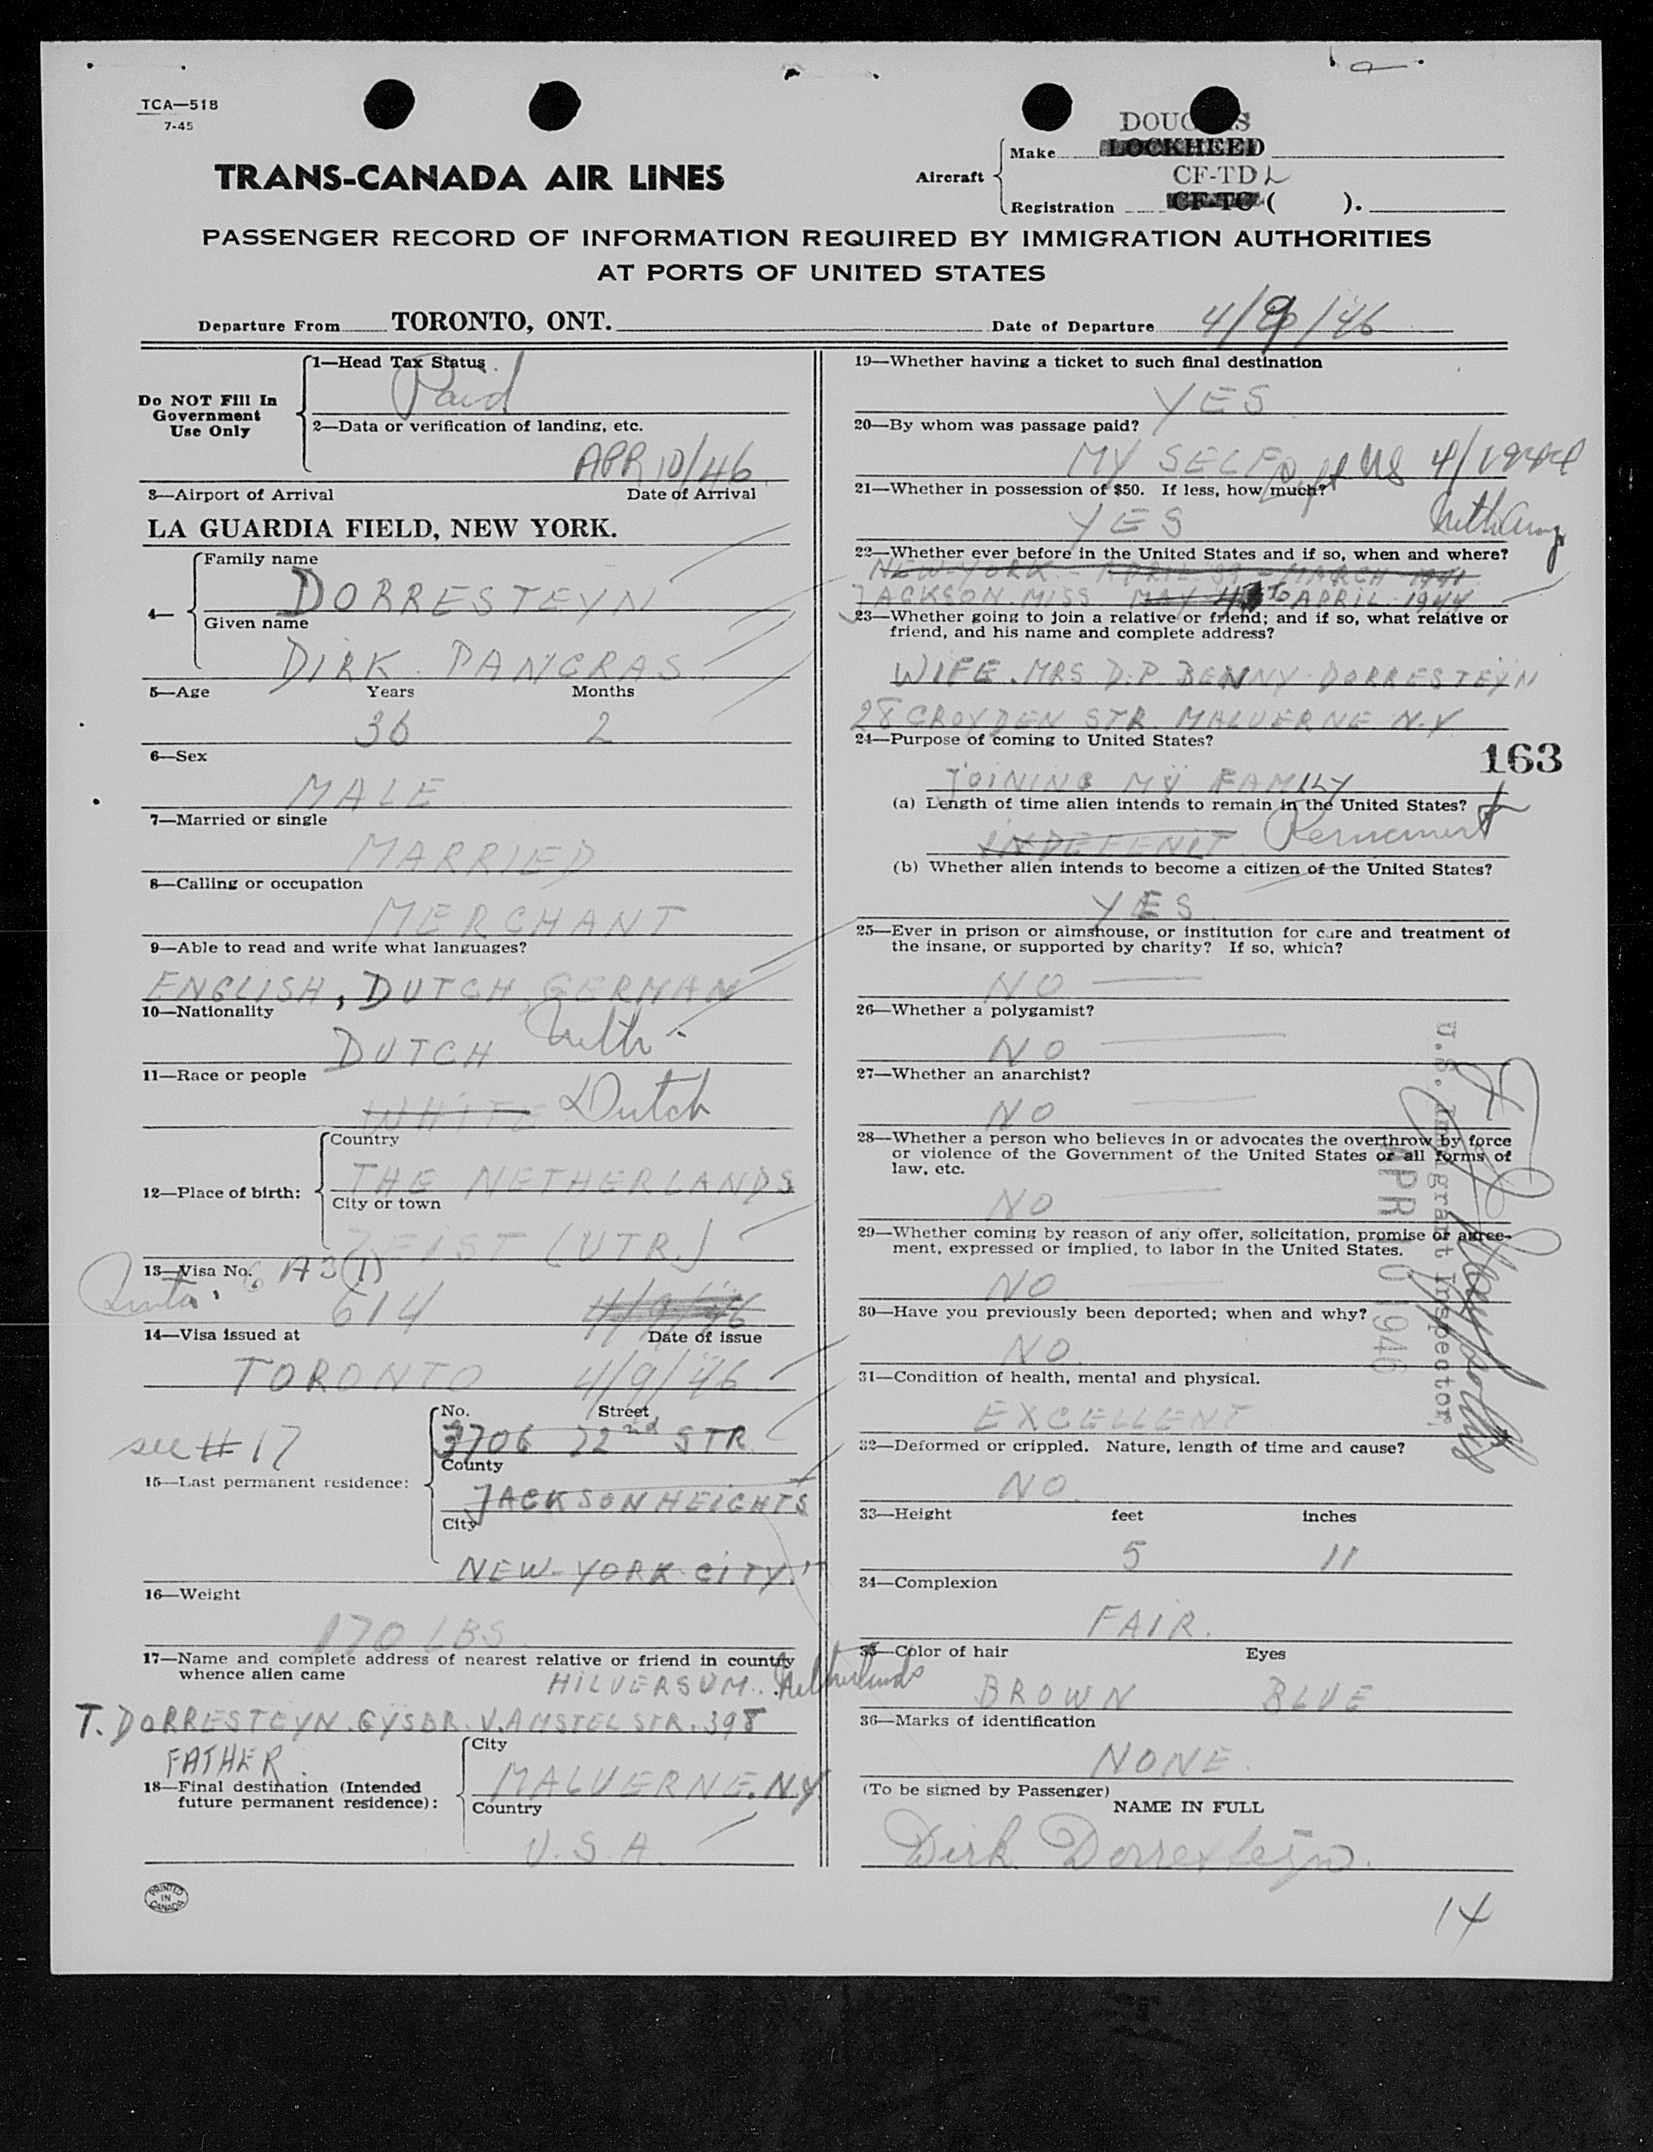 TCA—518
7-45
DOUGLAS
Aircraft
Make LOCKHEED
CF-TDL
Registration CF-TC ( ).
TRANS-CANADA AIR LINES
PASSENGER RECORD OF INFORMATION REQUIRED BY IMMIGRATION AUTHORITIES
AT PORTS OF UNITED STATES
Departure From TORONTO, ONT.
Date of Departure 4/9/46
Do NOT Fill In
Government
Use Only
1—Head Tax Status
Paid
2—Data or verification of landing, etc.
APR 10/46
3—Airport of Arrival Date of Arrival
LA GUARDIA FIELD, NEW YORK.
4—
Family name
DORRESTEYN
Given name
DIRK. PANCRAS.
5—Age Years Months
36 2
6—Sex
MALE
7—Married or single
MARRIED
8—Calling or occupation
MERCHANT
9—Able to read and write what languages?
ENGLISH, DUTCH, GERMAN
10—Nationality
DUTCH Neth
11—Race or people
WHITE Dutch
12—Place of birth:
Country
THE NETHERLANDS
City or town
ZEIST (UTR.)
13—Visa No. 6 A3(1)
Quota
614 4/9/46
14—Visa issued at Date of issue
TORONTO 4/9/46
see # 17
15—Last permanent residence:
No. Street
3706 72nd STR.
County
JACKSON HEIGHTS
City
NEW-YORK CITY.
16—Weight
170 LBS.
17—Name and complete address of nearest relative or friend in country
whence alien came
HILVERSUM. Netherlands
T. DORRESTEYN. GYSBR. V. AMSTEL STR. 398
FATHER.
18—Final destination (Intended
future permanent residence):
City
MALVERNE. N.Y
Country
U.S.A.
PRINTED
IN
CANADA
19—Whether having a ticket to such final destination
YES
20—By whom was passage paid?
MY SELF
21—Whether in possession of $50. If less, how much?
YES
22—Whether ever before in the United States and if so, when and where?
NEW-YORK - APRIL 39 - MARCH 1941
JACKSON. MISS MAY 42 to APRIL. 1944
23—Whether going to join a relative or friend; and if so, what relative or
friend, and his name and complete address?
WIFE. MRS. D.P. BENNY DORRESTEYN
28 CROYDEN STR. MALVERNE N.Y.
24—Purpose of coming to United States?
163
JOINING MY FAMILY
(a) Length of time alien intends to remain in the United States?
INDEFENIT Permanent
(b) Whether alien intends to become a citizen of the United States?
YES
25—Ever in prison or almshouse, or institution for care and treatment of
the insane, or supported by charity? If so, which?
NO
26—Whether a polygamist?
NO
27—Whether an anarchist?
NO
28—Whether a person who believes in or advocates the overthrow by force
or violence of the Government of the United States or all forms of
law, etc.
NO
29—Whether coming by reason of any offer, solicitation, promise or agree-
ment, expressed or implied, to labor in the United States.
NO
30—Have you previously been deported; when and why?
NO.
31—Condition of health, mental and physical.
EXCELLENT
32—Deformed or crippled. Nature, length of time and cause?
NO.
33—Height feet inches
5 11
34—Complexion
FAIR.
35—Color of hair Eyes
BROWN BLUE
36—Marks of identification
NONE.
(To be signed by Passenger)
NAME IN FULL
Dirk Dorresteyn.
14
U.S. Immigrant Inspector
APR 10 1946